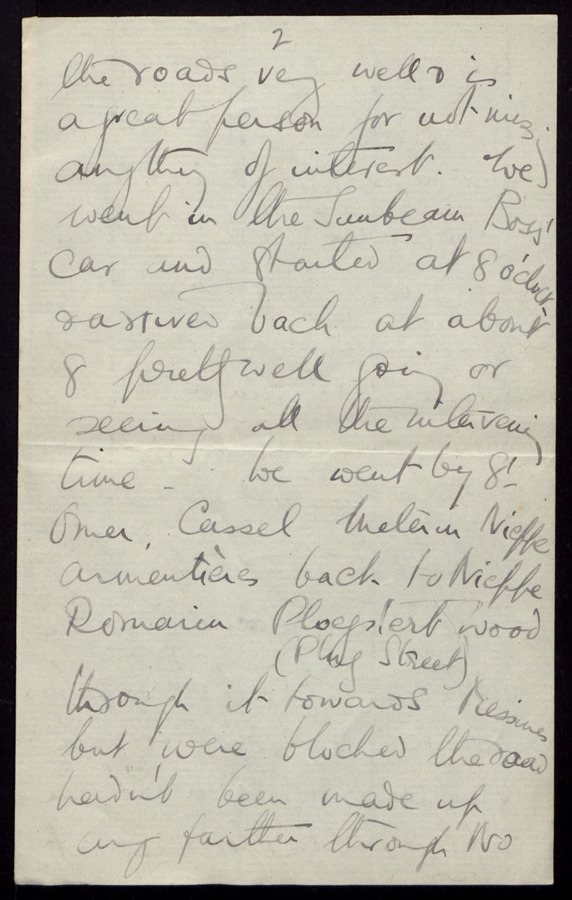 2
the roads very well & is
a great person for not missing
anything of interest. We
went in the Sunbeam Boss'
car and started at 8 o'clock
& arrived back at about
8 pretty well going or
seeing all the intervening
time - We went by St.
Omer, Cassel Meterin Nieppe
Armentières back to Nieppe
Romarin Ploegstert wood
(Plug Street)
through it towards Messines
but were blocked the road
hadn't been made up
any farther through No